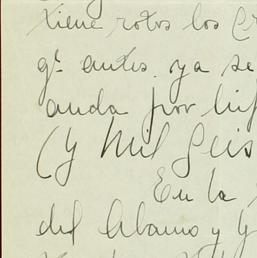 tiene rotos los
qe. antes. ya se
anda por
(y Mil Seis
En la
del Alamo y